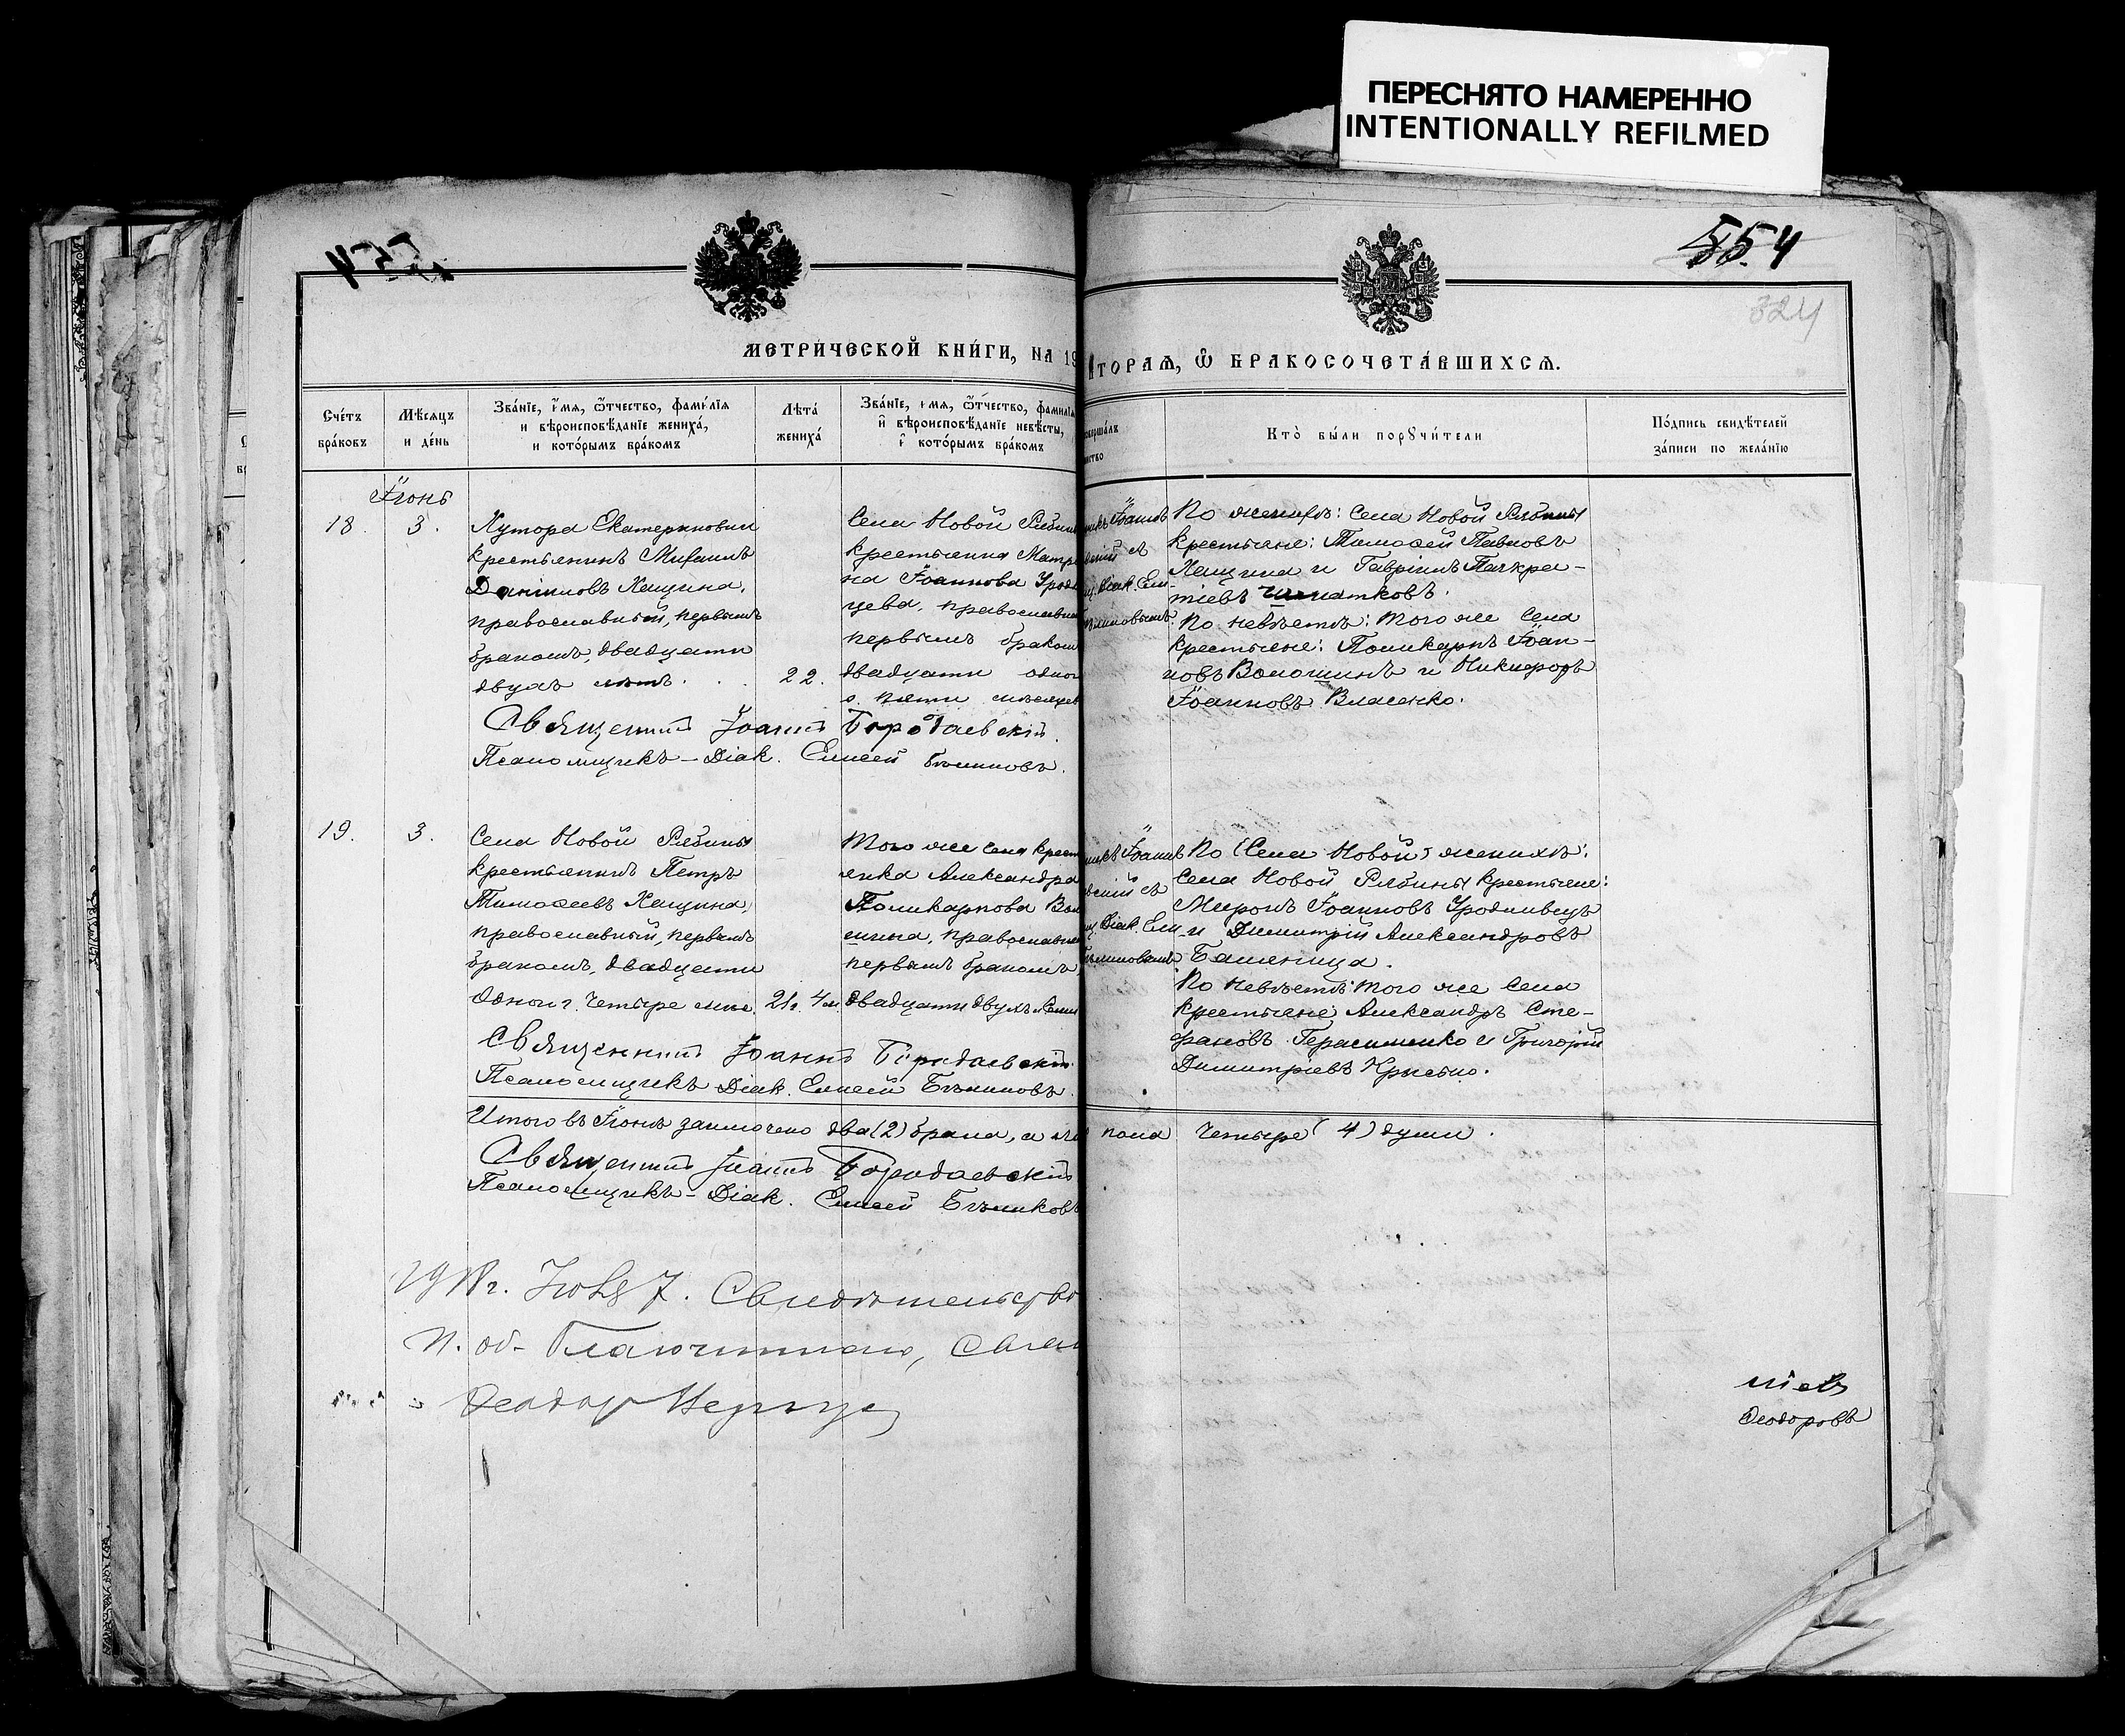 ПЕРЕСНЯТО НАМЕРЕННО
INTENTIONALLY REFILMED
554
324
МЕТРИ́ЧЕСКОЙ КНИ́ГИ, НА 19
ТОРАѦ, Ѽ БРАКОСОЧЕТА́ВШИХСѦ.
Сче́тъ бра́ковъ
Мѣ́сяцъ и де́нь
Зва́нїе, и́мя, ѻ҆́тчество, фами́лїя и вѣроисповѣ́данїе жениха́, и кото́рымъ бра́комъ
Лѣта́ жениха́
Зва́нїе, и́мя, ѻ҆́тчество, фами́лїя и вѣроисповѣ́данїе невѣ́сты, и кото́рымъ бра́комъ
Кто̀ бы́ли порꙋчи́тели
По́дпись свидѣ́телей за́писи по жела́нїю
Іюнь
18. 3.
Хутора Екатериновки
крестьянинъ Михаилъ
Даніиловъ Лещина,
православный, первымъ
бракомъ, двадцати
двухъ лѣтъ.
22.
Села Новой Рябины
крестьянка Матре
на Іоаннова Урод
цева, православн
первымъ браком
двадцати одног
пяти мѣсяцев
Іоаннъ
скій съ
Діак. Ели
По женихѣ: Села Новой Рябины
крестьяне: Тимоѳей Павловъ
Лещина и Гавріилъ Панкра-
тіевъ
По невѣстѣ: того же Села
крестьяне: Поликарпъ Іоан-
новъ Волошинъ и Никифоръ
Іоанновъ Власенко.
Священникъ Іоаннъ Бородаевскій.
Псаломщикъ-Діак. Елисей Бѣликовъ.
19. 3.
Села Новой Рябины
крестьянинъ Петръ
Тимоѳеевъ Лещина,
православный, первымъ
бракомъ, двадцати
одного г. четыре мѣс.
21г. 4м.
Того же села крест
янка Александра
Поликарпова Вол
шина, православн
первымъ бракомъ,
двадцати двухъ
Іоаннъ
вскій съ
Діак. Ели
По (Села Новой) женихѣ:
Села Новой Рябины крестьяне:
Миронъ Іоанновъ Уродливецъ
и Димитрій Александровъ
По невѣстѣ того же Села
крестьяне Александръ Сте-
фановъ Герасименко и Григорій
Димитріевъ
Священникъ Іоаннъ Бородаевскій.
Псаломщикъ Діак. Елисей Бѣликовъ.
Итого въ Іюнѣ заключено два (2) брака, а
пола четыре (4) души.
Священникъ Іоаннъ Бородаевскій
Псаломщикъ-Діак. Елисей Бѣликовъ
Іюня 7. Свидѣтельство
Ѳеодоровъ